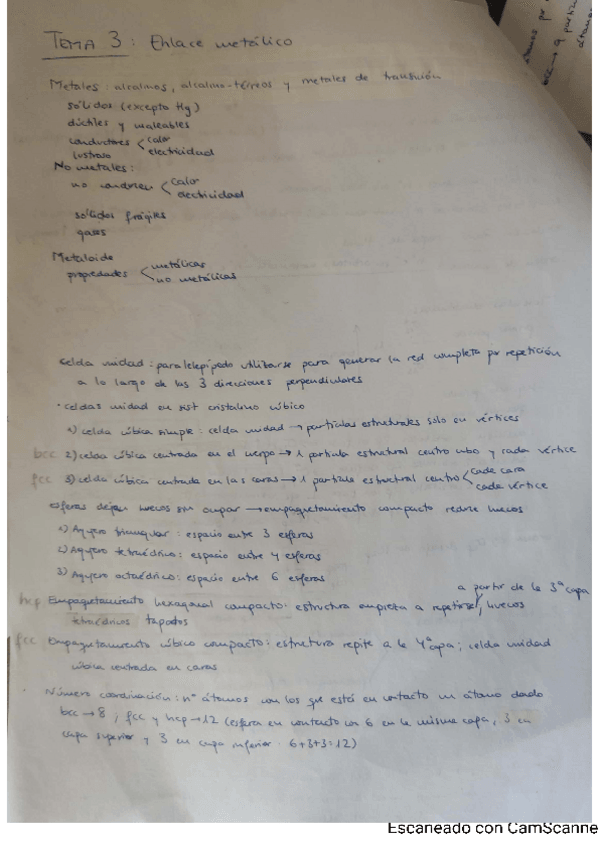 TEMA 3: Enlace metálico
Metales: alcalinos, alcalino-térreos y metales de transición
sólidos (excepto Hg)
dúctiles y maleables
conductores < calor
electricidad
lustroso
No metales:
no conducen < calor
electricidad
sólidos frágiles
gases
Metaloide
propiedades < metálicas
no metálicas
celda unidad: paralelepípedo utilizarse para generar la red completa por repetición
a lo largo de las 3 direcciones perpendiculares
· celdas unidad en sist cristalino cúbico
1) celda cúbica simple: celda unidad → partículas estructurales solo en vértices
bcc 2) celda cúbica centrada en el cuerpo → 1 partícula estructural centro cubo y cada vértice
fcc 3) celda cúbica centrada en las caras → 1 partícula estructural centro < cada cara
cada vértice
esferas dejan huecos sin ocupar → empaquetamiento compacto reduce huecos
1) Agujero triangular: espacio entre 3 esferas
2) Agujero tetraédrico: espacio entre 4 esferas
3) Agujero octaédrico: espacio entre 6 esferas
a partir de la 3ª capa
hcp Empaquetamiento hexagonal compacto: estructura empieza a repetirse, huecos
tetraédricos tapados
fcc Empaquetamiento cúbico compacto: estructura repite a la 4ª capa; celda unidad
cúbica centrada en caras
Número coordinación: nº átomos con los que está en contacto un átomo dado
bcc → 8, fcc y hcp → 12 (esfera en contacto con 6 en la misma capa, 3 en
capa superior y 3 en capa inferior: 6+3+3=12)
Escaneado con CamScanne